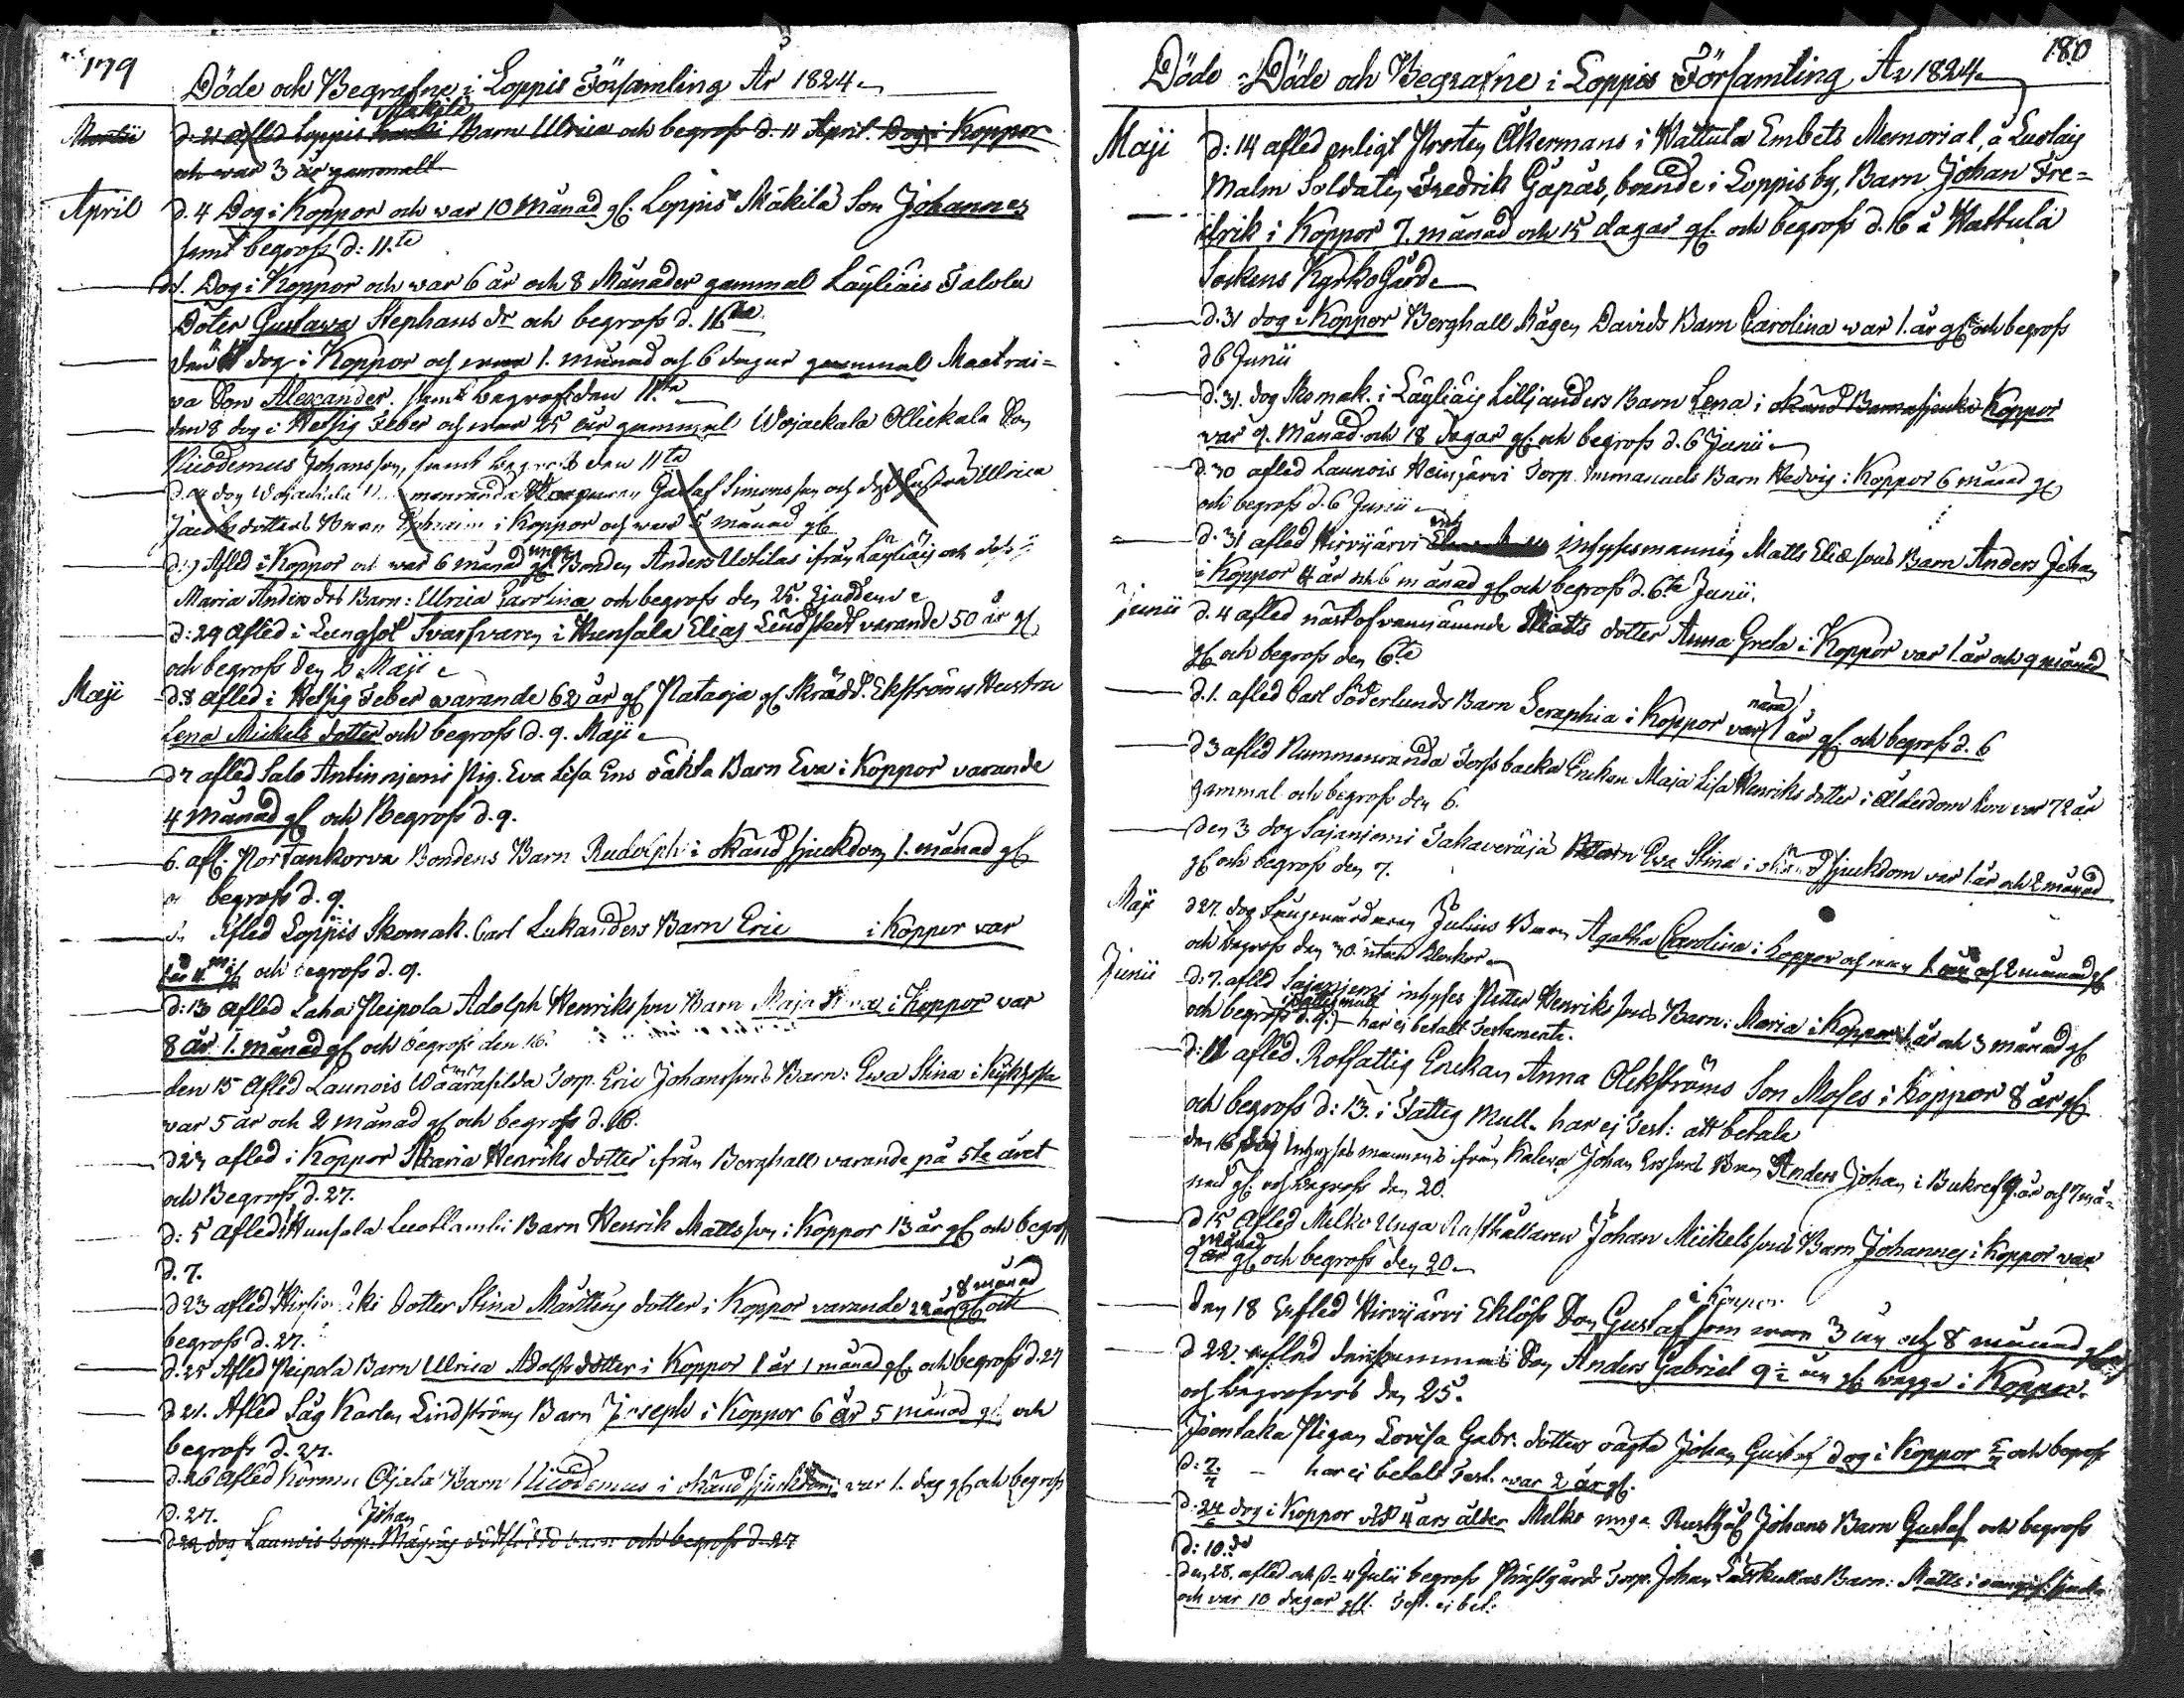 179
Döde och Begrafne i Loppis Församling År 1824
Mäkilä
Martii d: 21 afled Loppis Barn Ulrica och begrofs d. 11 April. Dog i Koppor
och war 3 år gammalt
April d. 4 Dog i Koppor och war 10 månad gl. Loppis Mäkilä Son Johannes
samt begrofs d: 11.te
Dog i Koppor och war 6 år och 8 Månader gammal Läyliäis Talola
Doter Gustava Stephans dr och begrofs d. 11
den dog i Koppor och war 1. månad och 6 dagar gammal Maatrai=
va Son Alexander. samt begrofs den 11.te
den 8 dog i Hetsig Feber och war 25 år gammal Wojackala Ollickala Son
Nicodemus Johansson, samt begrofs den 11te
dog Wojackala Gustaf Simonsson och dess hustru Ulrica
Jacobs dotters Barn Ephraim i Koppor och war 5 månad gl.
unga
Afled i Koppor och war 6 månad gl. Bonden Anders Uotilas ifrån Läyliäis och dess
Maria Anders drs Barn: Ulrica Carolina och begrofs den 25. ejusdem
d: 29 Afled i Lungsot Svarfvaren i Hunsala Elias Lindstedt varande 50 år gl.
och begrofs den 2 Maji
Maji d. 8 afled i Hetsig Feber warande 62 år gl. Pataoja gl. Skrädd. Ekströms Hustru
Lena Mickels dotter och begrofs d. 9. Maji
d 7 afled Salo Antinniemi Pig. Eva Lisa Ers oäkta Barn Eva i Koppor varande
4 månad gl. och Begrofs d. 9.
6. afl: Portankorva Bondens Barn Rudolph i okänd sjuckdom 1. månad gl.
begrofs d. 9.
Afled Loppis Skomak. Carl Lukanders Barn Eric i Koppor var
och begrofs d. 9.
d: 13 Afled Laha Peipola Adolph Henriksson Barn Maja Stina i Koppor var
8 år 1. månad gl. och begrofs den 16.
den 15 Afled Launois Waarasilda Torp. Eric Johanssons Barn: Ewa Stina i Kikhosta
war 5 år och 2 månad gl. och begrofs d. 16.
d 23 afled i Koppor Maria Henriks dotter ifrån Berghall varande på 5te året
och Begrofs d. 27.
d: 5 Afled Hunsala Luotlambi Barn Henrik Mattsson i Koppor 13 år gl. och begrofs
d. 7.
8 månad
d 23 afled dotter Stina Mårtens dotter i Koppor varande 22 år gl. och
begrofs d. 27.
d. 25 Afled Peipola Barn Ulrica Adolfs dotter i Koppor 1 år 1 månad gl. och begrofs d. 27
d 21. Afled Såg Karlen Lindströms Barn Joseph i Koppor 6 år 5 månad gl. och
begrofs d. 27.
d. 26 Afled Ojala Barn Nicodemus i okänd sjuckdom var 1. dag gl. och begrofs
d. 27.
Johan
d 22 dog Launois Torp. barn och begrofs d. 27
180
Döde = Döde och Begrafne i Loppis Församling År 1824
Maji d: 14 afled enligt Prosten Åkermans i Wattula Embets Memorial, å Luolais
Malm Soldaten Fredrik Gåpås, boende i Loppis by, Barn Johan Fre=
drik i Koppor 7. månad och 15 dagar gl. och begrofs d. 16 å Wattula
Sockens Kyrko Gård
d. 31 dog i Koppor Berghall Mågen Davids Barn Carolina war 1. år gl. och begrofs
d 6 Junii
d. 31. dog Skomak. i Läyliäis Lilljanders Barn Lena i Koppor
var 9. Månad och 18 dagar gl. och begrofs d. 6 Junii
d. 30 afled Launois Heinjärvi Torp. Immanuels Barn Hedvig i Koppor 6 månad gl.
och begrofs d. 6 Junii
d. 31 afled Hirvijärvi Inhysesmannen Matts Eliæsons Barn Anders Johan
i Koppor 4 år och 6 månad gl. och begrofs d. 6te Junii.
Junii d. 4 afled näst ofvannämnde Matts dotter Anna Greta i Koppor var 1. år och 9 månad
gl. och begrofs den 6te
nära
d. 1. afled Carl Söderlunds Barn Seraphia i Koppor var 1 år gl. och begrofs d. 6
d 3 afled Nummenranda Torpsbacka Enckan Maja Lisa Henriks dotter i Ålderdom hon var 72 år
gammal och begrofs den 6.
Den 3 dog Sajaniemi Takaveräjä Barn Ewa Stina i okänd sjuckdom var 1 år och 2 månad
gl. och begrofs den 7.
Maji d 27. dog Julius Barn Agatha Carolina i Koppor och war 1 år och 2 månad gl.
och begrofs den 30. utan klockor
Junii d: 7. afled Sajaniemi inhyses Petter Henrikssons Barn: Maria i Koppor 1. år och 3 månad gl.
och begrofs d. 9. har ej betalt Testamente.
d: 11 afled Rotfattig Enckan Anna Olckströms Son Moses i Koppor 8 år gl.
och begrofs d: 13. i Fattig Mull. har ej Test: att betala
den 16 Dog Inhysesmannens ifrån Kaleva Johan Erssons Barn Anders Johan i Bukref 9. år och 7 må=
nad gl. och begrofs den 20.
d 15 Afled Melko Unga Rusthållaren Johan Mickelssons Barn Johannes i Koppor var
månad
9 år gl. och begrofs den 20
i Koppor
den 18 Afled Hirvijärvi Eklöfs Son Gustaf som war 3 år och 8 månad gl.
d 22. aflad densammas Son Anders Gabriel 9 ½ år gl. begge i Koppor.
och begrofvos den 25.
Joentaka Pigan Lovisa Gabr. dotters oägta Johan Gustaf dog i Koppor och begrofs
d: 7. har ej betalt Test. war 2 år gl.
d: 24 dog i Koppor vid 4 års ålder Melko unga Rusthål. Johans Barn Gustaf och begrofs
d: 10.de
Den 28. afled och d= 4 Julii begrofs Prästgårds Torp. Johan Barn: Matts i
och var 10 dagar gl. Test. ej bet: